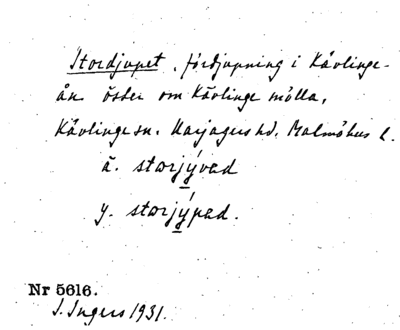 Stordjupet, fördjupning i Kävlinge-
ån öster om Kävlinge mölla,
Kävlinge sn. Harjagers hd. Malmöhus l.
ä. storjývad
y. storjýpad.
Nr 5616.
I. Ingers 1931.